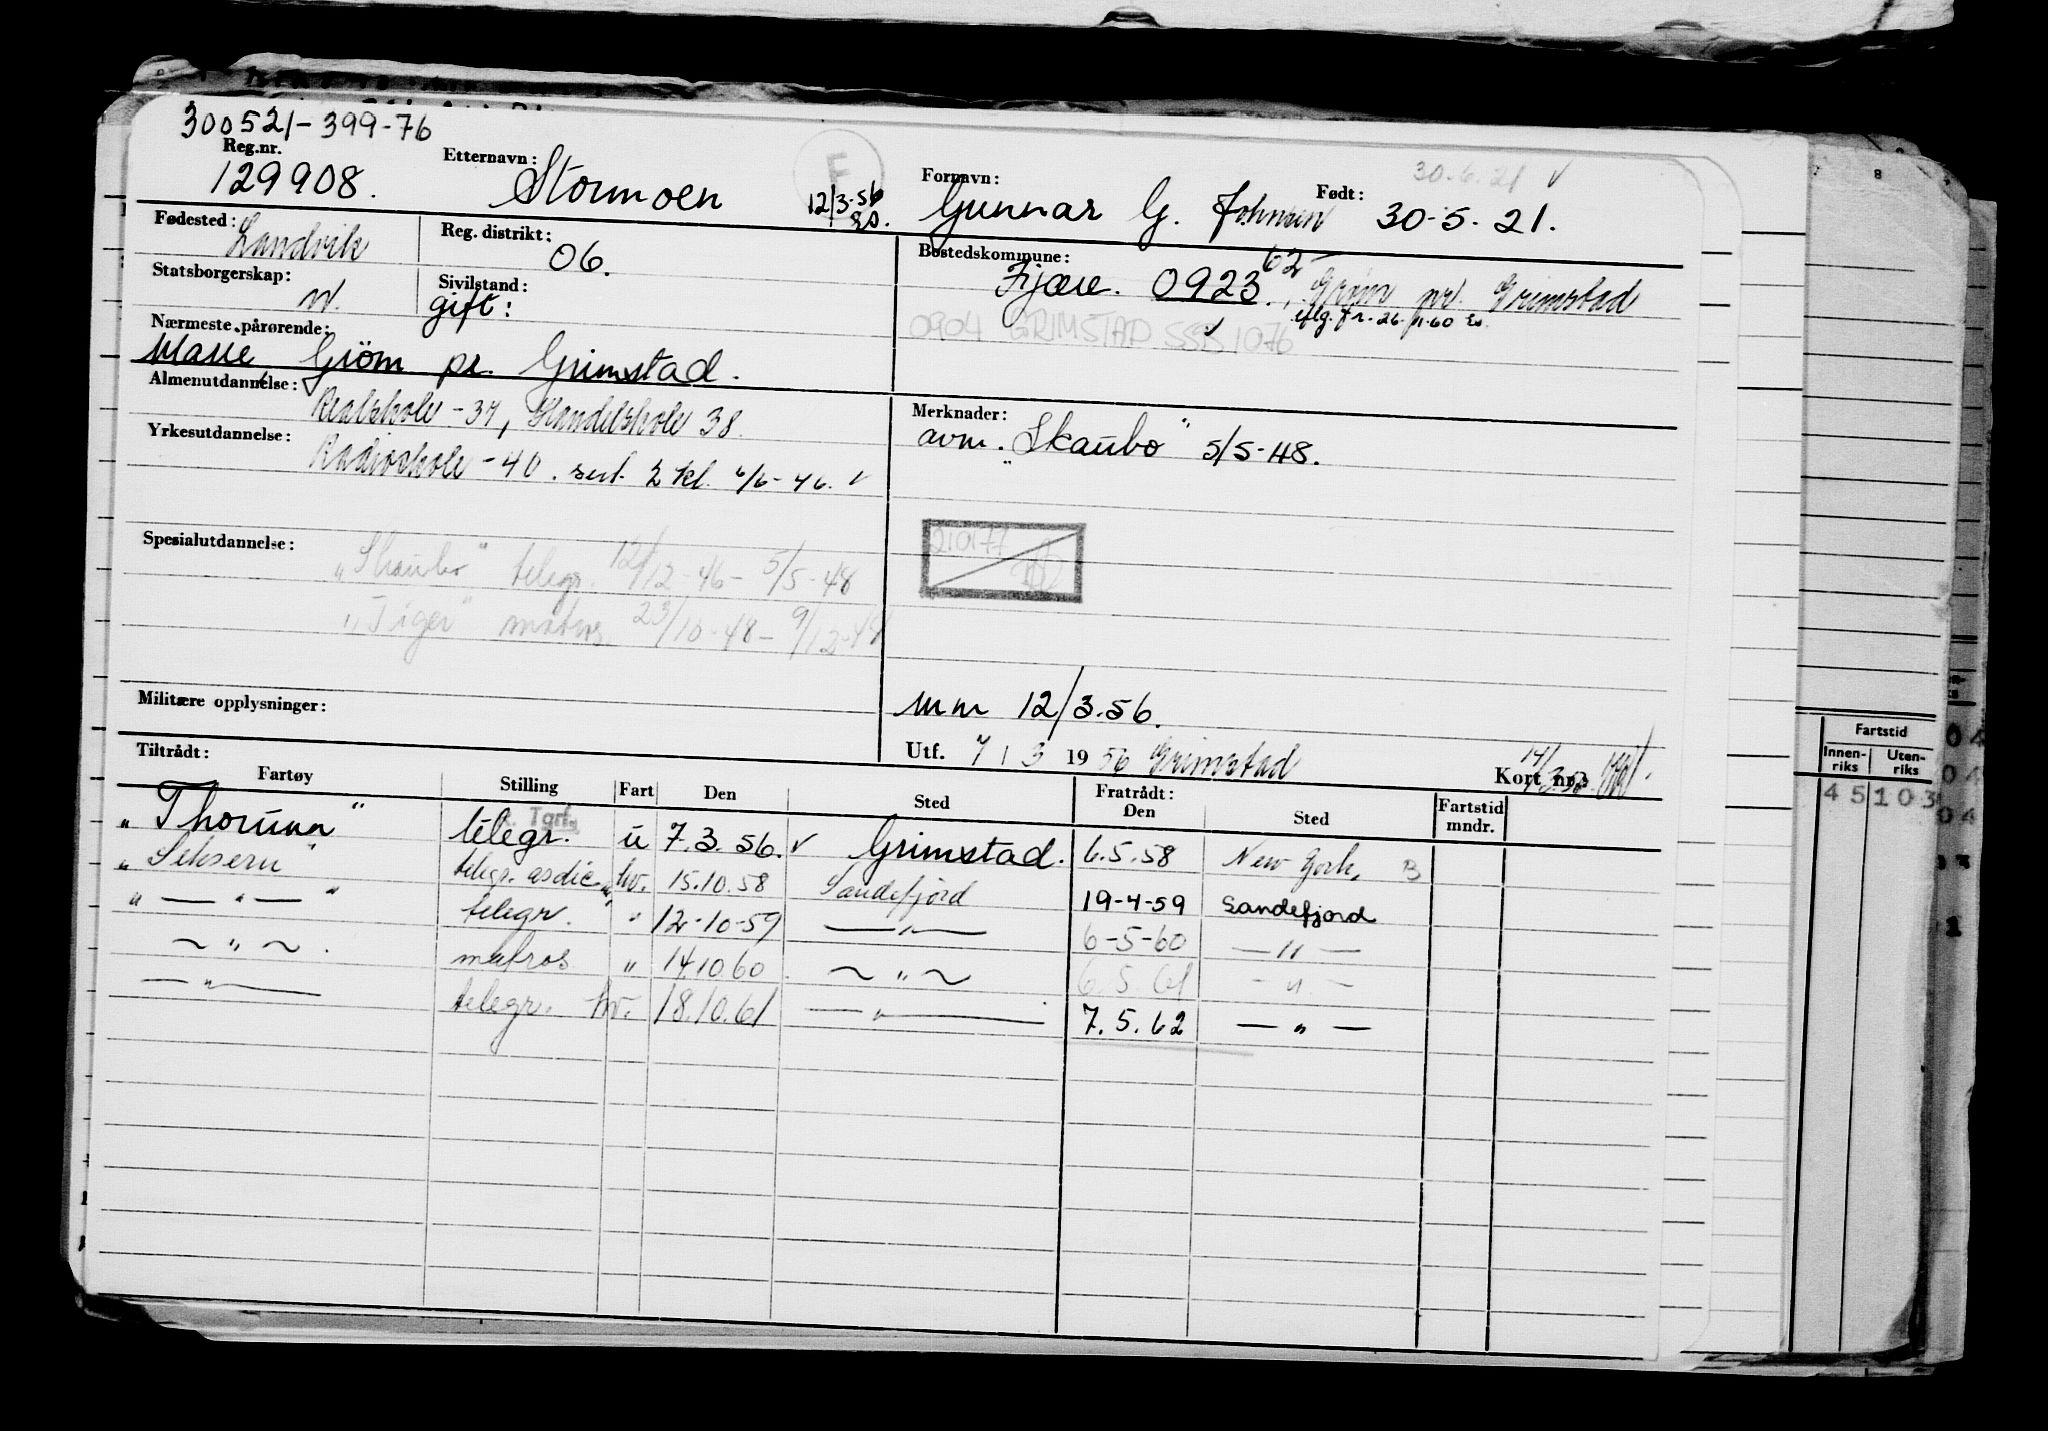 300521-399-76
Reg.nr. Etternavn: Fornavn: 30.6.21 Født:
129908. Stormoen 12/3-56 Gunnar G. Johnsen 30-5-21.
Fødested: Landvik Reg. distrikt: 06. Bostedskommune: 62
Fjære. 0923., Grøm pr. Grimstad
Statsborgerskap: N. Sivilstand: gift: 0904 GRIMSTAD SSB 1076
Nærmeste pårørende:
Gröm pr. Grimstad.
Almenutdannelse: Realskole -37, Handelskole 38. Merknader:
avm. "Skaubo" 5/5-48.
Yrkesutdannelse: Radioskole -40. sert. 2 kl. 6/6-46.
210177
Spesialutdannelse: "Skaubo" telegr. 12/12-46 - 5/5-48
"Tiger" matros 23/10-48 - 9/12-48
Militære opplysninger: mm 12/3.56.
Tiltrådt: Utf. 7 / 3 1956 Grimstad Kort nr.
Fartøy Stilling Fart Den Sted Fratrådt: Den Sted Fartstid mndr.
R. Tgrf.
"Thorunn" telegr. u 7.3.56. Grimstad. 6.5.58 New York. B
telegr. asdic hv. 15.10.58 Sandefjord 19-4-59 Sandefjord
" — " — " telegr. " 12-10-59 — " — 6-5-60 — " —
~ " ~ . matros " 14.10.60 ~ " ~ 6.5.61 - " -
— " — telegr. hv. 18.10.61 — " — 7.5.62 — " —
8
Fartstid
Innenriks Utenriks
45 103